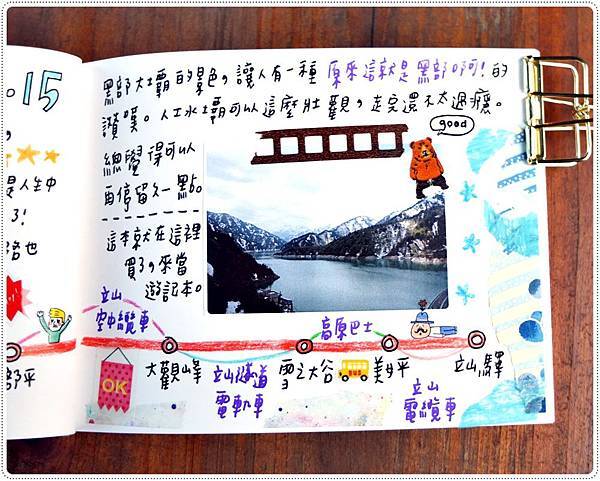 15
黑部大壩的景色，讓人有一種 原來這就是黑部啊！的
讚嘆。人工水壩可以這麼壯觀，走完還不太過癮。
good
總覺得可以
再停留久一點。
這本就在這裡
買了，來當
遊記本。
是人生中
了！
路也
立山
空中纜車
高原巴士
部平
OK
大觀峰
立山隧道
電軌車
雪之大谷
BUS
美女平
立山
電纜車
立山驛